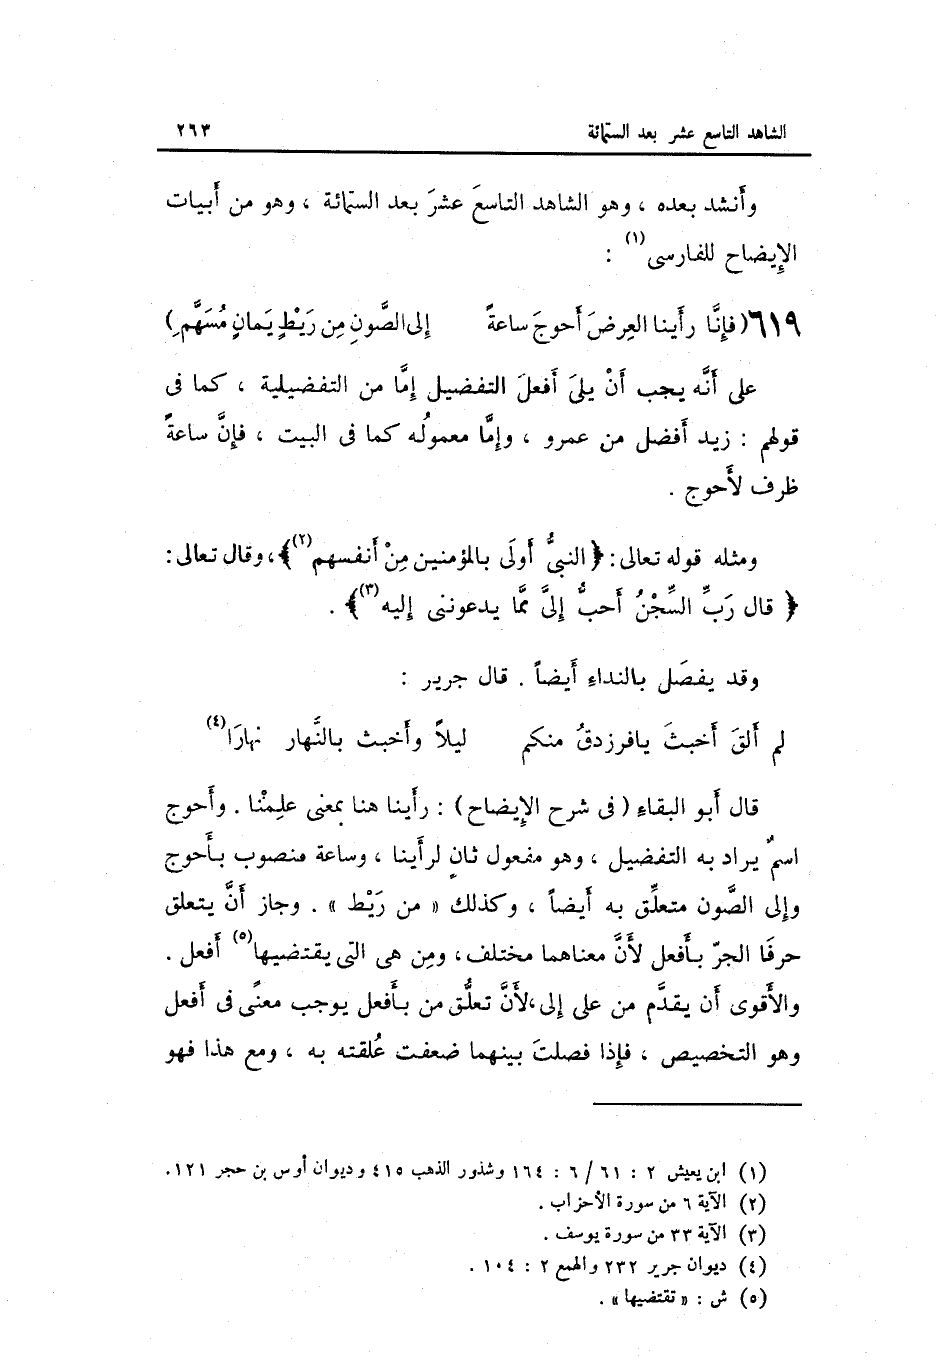 الشاهد التاسع عشر بعد الستمائة ٢٦٣
وأَنشد بعده ، وهو الشاهد التاسعَ عشرَ بعد الستمائة ، وهو من أَبيات
الإِيضاح للفارسى(١) :
٦١٩(فإِنَّا رأَينا العِرضَ أَحوجَ ساعةً إلى الصَّونِ مِن رَيْطٍ يَمانٍ مُسَهَّمِ)
على أَنَّه يجب أَنْ يلىَ أَفعلَ التفضيل إمَّا من التفضيلية ، كما فى
قولهم : زيد أَفضل من عمرو ، وإمَّا معمولُه كما فى البيت ، فإنَّ ساعةً
ظرف لأَحوج .
ومثله قوله تعالى : ﴿ النبىُّ أَولَى بالمؤمنين مِنْ أَنفسهم(٢)﴾، وقال تعالى :
﴿ قال رَبِّ السِّجْنُ أَحبُّ إلىَّ ممَّا يدعوننى إليه(٣)﴾ .
وقد يفصَل بالنداءِ أَيضاً . قال جرير :
لم أَلقَ أَخبثَ يافرزدقُ منكم ليلاً وأَخبث بالنَّهار نهارَا(٤)
قال أَبو البقاءِ ( فى شرح الإِيضاح ) : رأَينا هنا بمعنى علِمْنا . وأَحوج
اسمٌ يراد به التفضيل ، وهو مفعول ثانٍ لرأَينا ، وساعة منصوب بأَحوج
وإلى الصَّون متعلِّق به أَيضاً ، وكذلك « من رَيْط » . وجاز أَنَّ يتعلق
حرفَا الجرّ بأَفعل لأَنَّ معناهما مختلف ، ومِن هى التى يقتضيها(٥) أَفعل .
والأَقوى أَن يقدَّم من على إلى، لأَنَّ تعلُّق من بأَفعل يوجب معنًى فى أَفعل
وهو التخصيص ، فإِذا فصلتَ بينهما ضعفت عُلقته به ، ومع هذا فهو
(١) ابن يعيش ٢ : ٦١ / ٦ : ١٦٤ وشذور الذهب ٤١٥ وديوان أوس بن حجر ١٢١ .
(٢) الآية ٦ من سورة الأحزاب .
(٣) الآية ٣٣ من سورة يوسف .
(٤) ديوان جرير ٢٣٢ والهمع ٢ : ١٠٤ .
(٥) ش : « تقتضيها » .